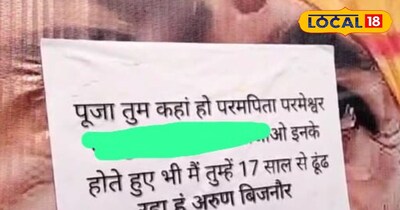 LOCAL 18
पूजा तुम कहां हो परमपिता परमेश्वर
इनके
होते हुए भी मैं तुम्हें 17 साल से ढूंढ
रहा हूं अरुण बिजनौर